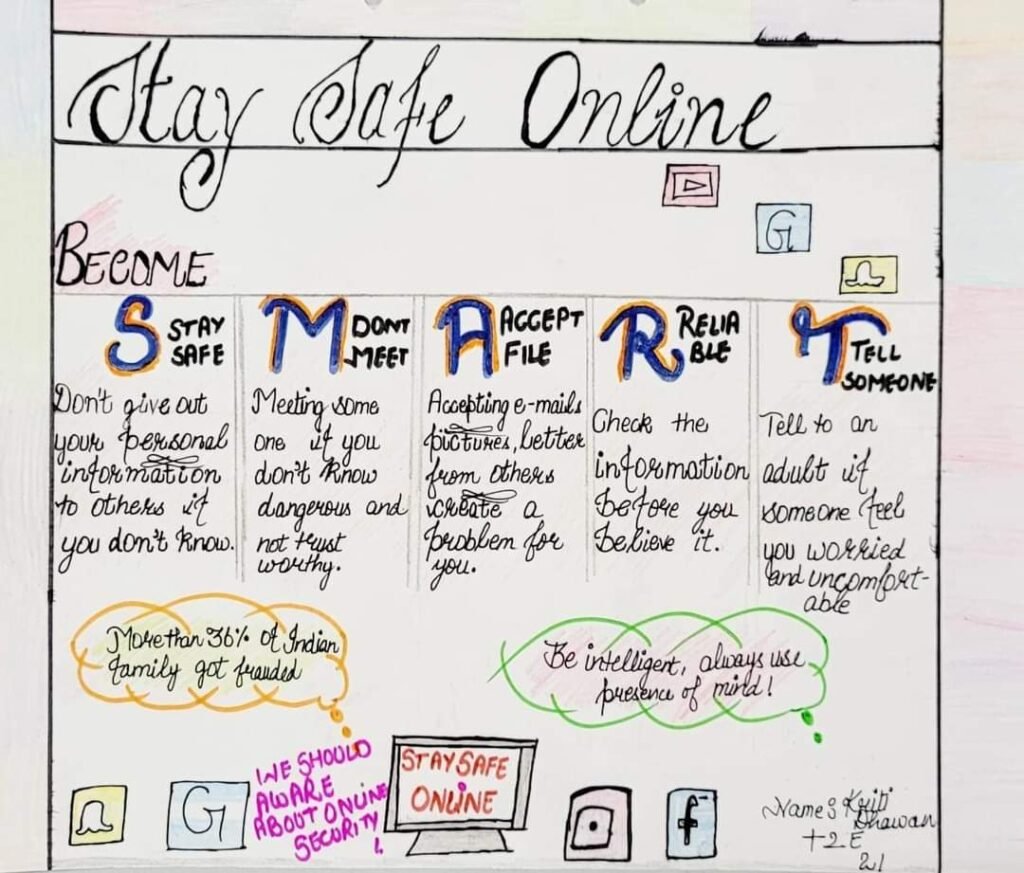 Stay Safe Online
G
BECOME
S STAY
SAFE
Don't give out
your personal
information
to others if
you don't know.
M DONT
MEET
Meeting some
one if you
don't know
dangerous and
not trust
worthy.
A ACCEPT
FILE
Accepting e-mails
pictures, letter
from others
create a
problem for
you.
R RELIA
BLE
Check the
information
before you
believe it.
T TELL
SOMEONE
Tell to an
adult if
someone feel
you worried
and uncomfort-
able
More than 36% of Indian
family got frauded
Be intelligent, always use
presence of mind!
G
WE SHOULD
AWARE
ABOUT ONLINE
SECURITY!
STAY SAFE
ONLINE
f
Name: Kriti
Dhawan
+2 E
21